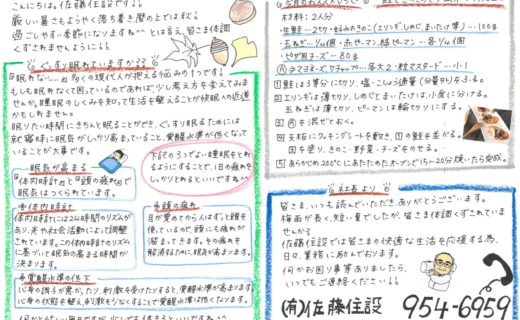 こんにちは。佐藤住設です。
厳しい暑さもようやく落ち着き間の上では秋!
過ごしやすい季節になりますね〜 とは言え、皆さま体調
くずされませんように!!
ぐっすり眠れていますか??
多くの現代人が抱える悩みの1つです!
もしも眠れなくて困っているのであれば少し考え方を変えてみませ
んか。睡眠のしくみを知って生活を整えることが快眠への近道
かもしれません。
眠りたい時間にきちんと眠ることができ、ぐっすり眠るためには
就寝時に眠気がしっかり高まっていること、覚醒水準が低くなって
いることが大事です。
眠気が高まる
①体内時計 ②頭の疲れ で
眠気はつくられています。
下記の3つでよい睡眠をとれ
るようにすることで、1日の疲れを
しっかりとるといいですね
体内時計
体内時計には24時間のリズムが
あり、光や社会活動によって調整
されています。この体内時計のリズム
に基づいて眠気の高まる時間が
決まります。
頭の疲れ
目が覚めてから人はずっと頭を
使っているので、頭にも疲れが
溜まってきます。その疲れを
解消するために眠気が高まります。
覚醒水準の低下
心身の調子が良かったり、刺激を受けたりすると、覚醒水準が高まります
心身の状態を整え、刺激を少なくすることで覚醒水準は低くなります。
材料:2人分
・生鮭…2切 ・好みのきのこ(エリンギ、しめじ、まいたけ等)…100g
・玉ねぎ…1/4個 ・赤ピーマン、緑ピーマン…各1/4個
・ピザ用チーズ…80g
Ⓐマヨネーズ、ケチャップ…各大2 粒マスタード…小1
①鮭は3等分に切り、塩・こしょう適量(分量外)をふる。
②エリンギは薄切り、しめじとまいたけは、小房に分ける。
玉ねぎは薄切り、ピーマンは輪切りにする。
③Ⓐを混ぜておく。
④天板にクッキングシートを敷き、①の鮭を並べる。
⑤あらかじめ200℃にあたためたオーブンで15〜20分焼いたら完成。
社長より
皆さま、いつも読んでいただき、ありがとうございます。
梅雨が長く、短い夏でしたが、皆さま体調くずされていませ
んか?
佐藤住設では皆さまの快適な生活を応援する為、
日々、業務に励んでおります。
何かお困り事等ありましたら、
いつでもご連絡ください!!
(有)佐藤住設 954-6959